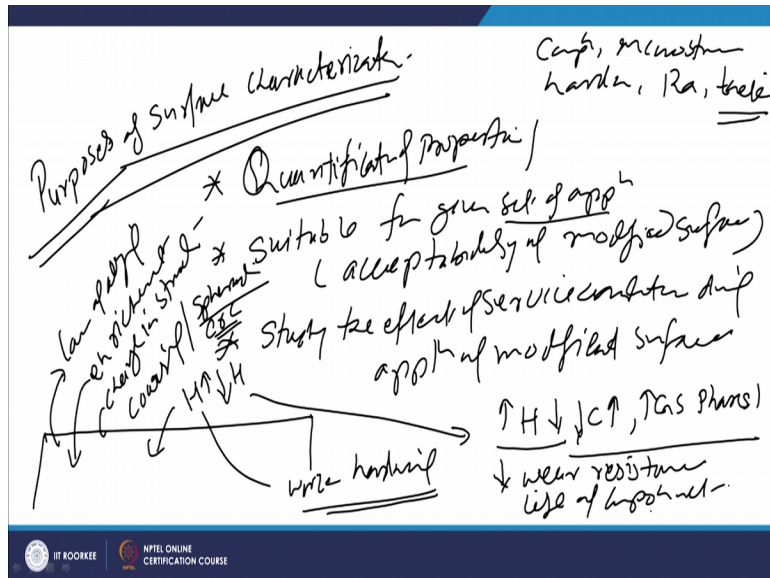 Purposes of Surface characterizatn.
Comph, microstru
hardn, Ra, these
* Quantification of properties
* Suitable for given set of apph
(acceptability of modified surface)
* Study the effect of service condition during
apph of modified surface
enrichment
change in struct
H↑ ↓H
work hardening
↑H↓ ↓C↑, ↑GS phases
↓ wear resistance
life of
IIT ROORKEE
NPTEL ONLINE
CERTIFICATION COURSE